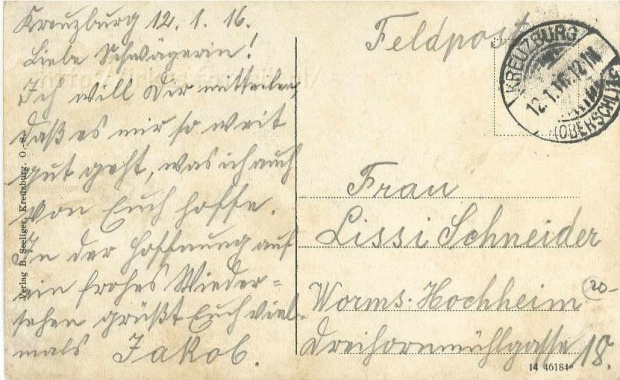 Kreuzburg 12.1.16.
Liebe Schwägerin!
Ich will Dir mitteilen,
daß es mir so weit
gut geht, was ich auch
von Euch hoffe.
In der Hoffnung auf
ein frohes Wieder-
sehen grüßt Euch viel-
mals Jakob.
Verlag B. Seeliger, Kreuzburg, O.-S.
Feldpost
KREUZBURG
12.1.16. 12-1N
(OBERSCHLES
Frau
Lissi Schneider
Worms-Hochheim
Dreihornmühlgasse 18.
20-
14 46184